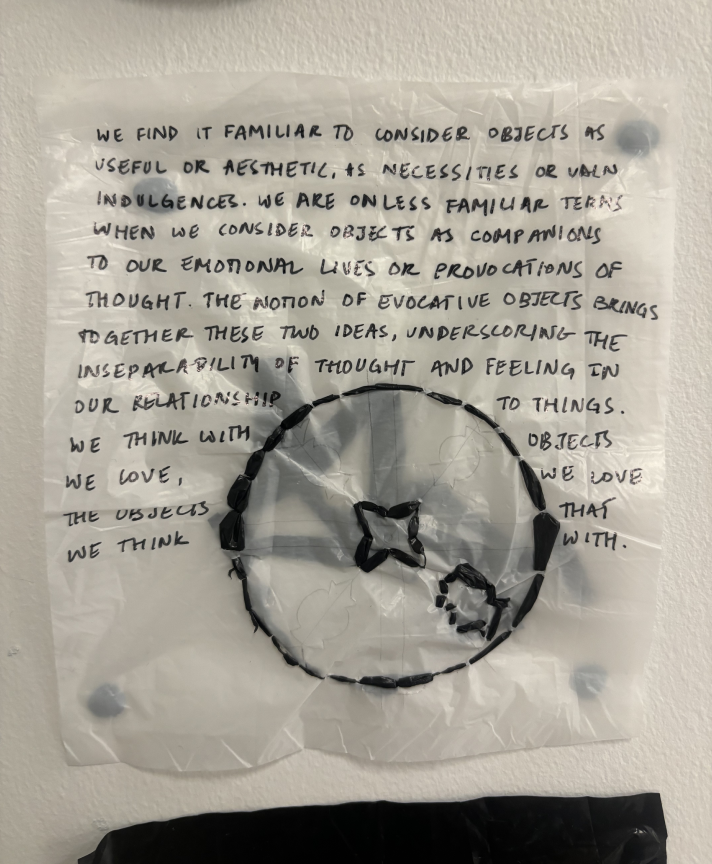 WE FIND IT FAMILIAR TO CONSIDER OBJECTS AS
USEFUL OR AESTHETIC, AS NECESSITIES OR VAIN
INDULGENCES. WE ARE ON LESS FAMILIAR TERMS
WHEN WE CONSIDER OBJECTS AS COMPANIONS
TO OUR EMOTIONAL LIVES OR PROVOCATIONS OF
THOUGHT. THE NOTION OF EVOCATIVE OBJECTS BRINGS
TOGETHER THESE TWO IDEAS, UNDERSCORING THE
INSEPARABILITY OF THOUGHT AND FEELING IN
OUR RELATIONSHIP TO THINGS.
WE THINK WITH OBJECTS
WE LOVE, WE LOVE
THE OBJECTS THAT
WE THINK WITH.